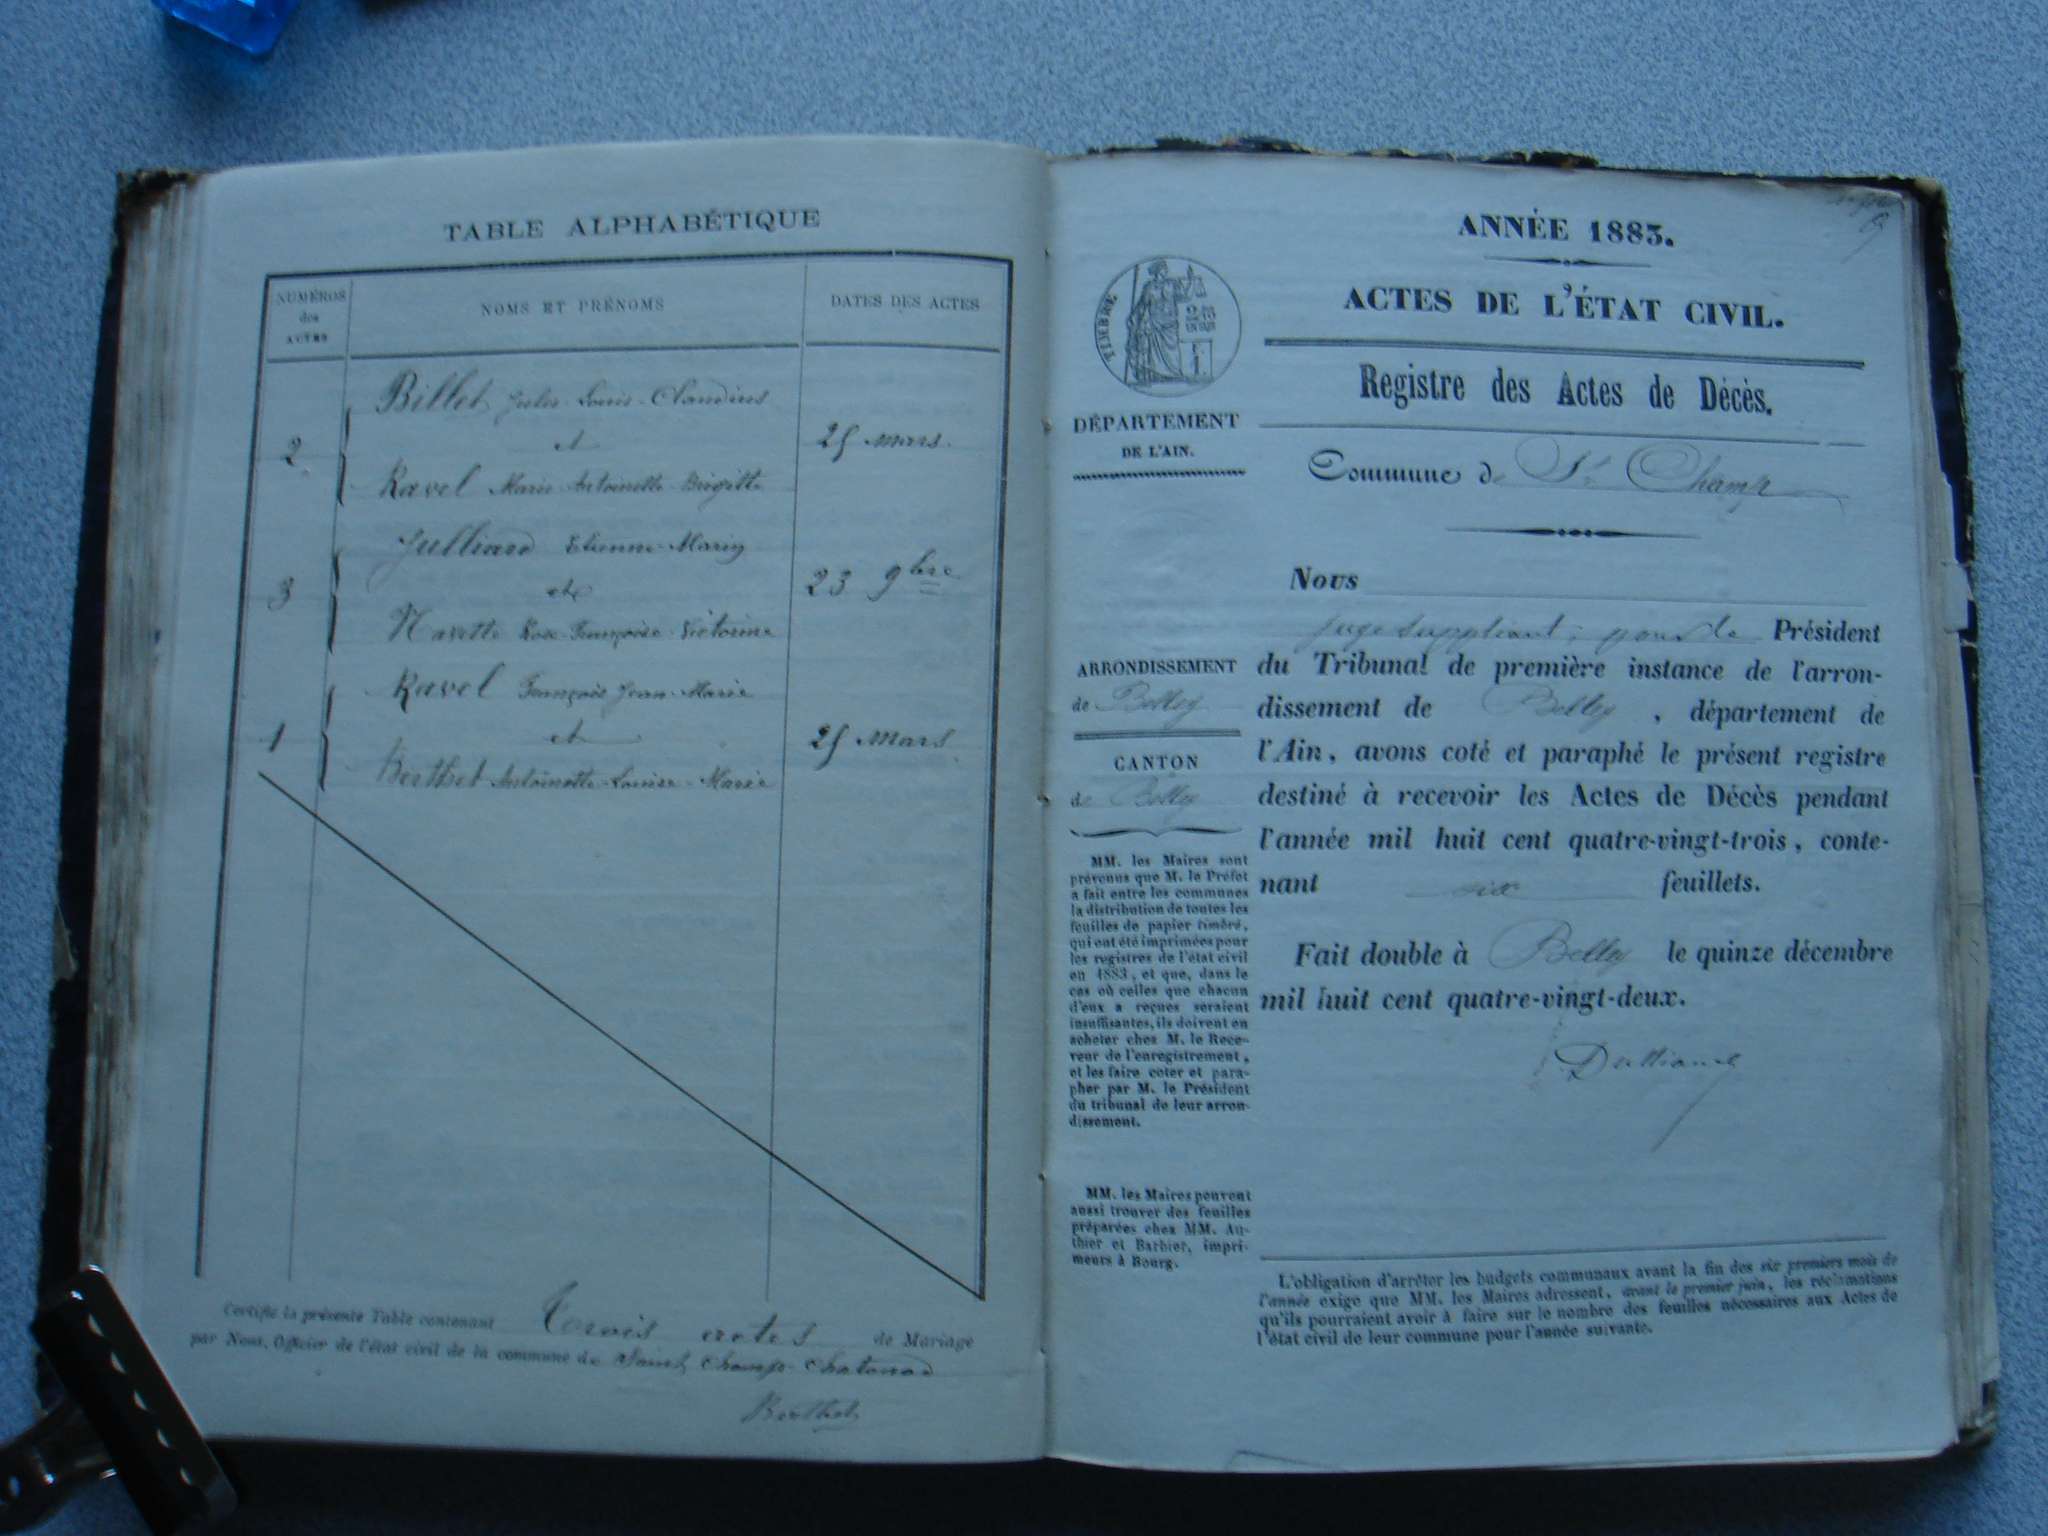 TABLE ALPHABÉTIQUE
NUMÉROS
des
ACTES
NOMS ET PRÉNOMS
DATES DES ACTES
Billet Jules-Louis-Claudius
et
2
25 mars.
Ravel Marie-Antoinette-Brigitte
Julliard Etienne-Marin
et
3
23 9bre
Navette Rose-Françoise-Victorine
Ravel François Jean-Marie
et
1
25 Mars
Berthet Antoinette-Louise-Marie
Certifie la présente Table contenant Trois actes de Mariage
par Nous, Officier de l'état civil de la commune de Saint Champ-Chatonod
Berthet
ANNÉE 1883.
ACTES DE L'ÉTAT CIVIL.
TIMBRE
Registre des Actes de Décès.
DÉPARTEMENT
DE L'AIN.
Commune de St Champ
Nous
juge suppléant, pour le Président
du Tribunal de première instance de l'arron-
dissement de Belley, département de
l'Ain, avons coté et paraphé le présent registre
destiné à recevoir les Actes de Décès pendant
l'année mil huit cent quatre-vingt-trois, conte-
nant six feuillets.
Fait double à Belley le quinze décembre
mil huit cent quatre-vingt-deux.
ARRONDISSEMENT
de Belley
CANTON
de Belley
MM. les Maires sont
prévenus que M. le Préfet
a fait entre les communes
la distribution de toutes les
feuilles de papier timbré,
qui ont été imprimées pour
les registres de l'état civil
en 1883, et que, dans le
cas où celles que chacun
d'eux a reçues seraient
insuffisantes, ils doivent en
acheter chez M. le Rece-
veur de l'enregistrement,
et les faire coter et para-
pher par M. le Président
du tribunal de leur arron-
dissement.
MM. les Maires peuvent
aussi trouver des feuilles
préparées chez MM. Au-
thier et Barbier, impri-
meurs à Bourg.
L'obligation d'arrêter les budgets communaux avant la fin des six premiers mois de
l'année exige que MM. les Maires adressent, avant le premier juin, les réclamations
qu'ils pourraient avoir à faire sur le nombre des feuilles nécessaires aux Actes de
l'état civil de leur commune pour l'année suivante.